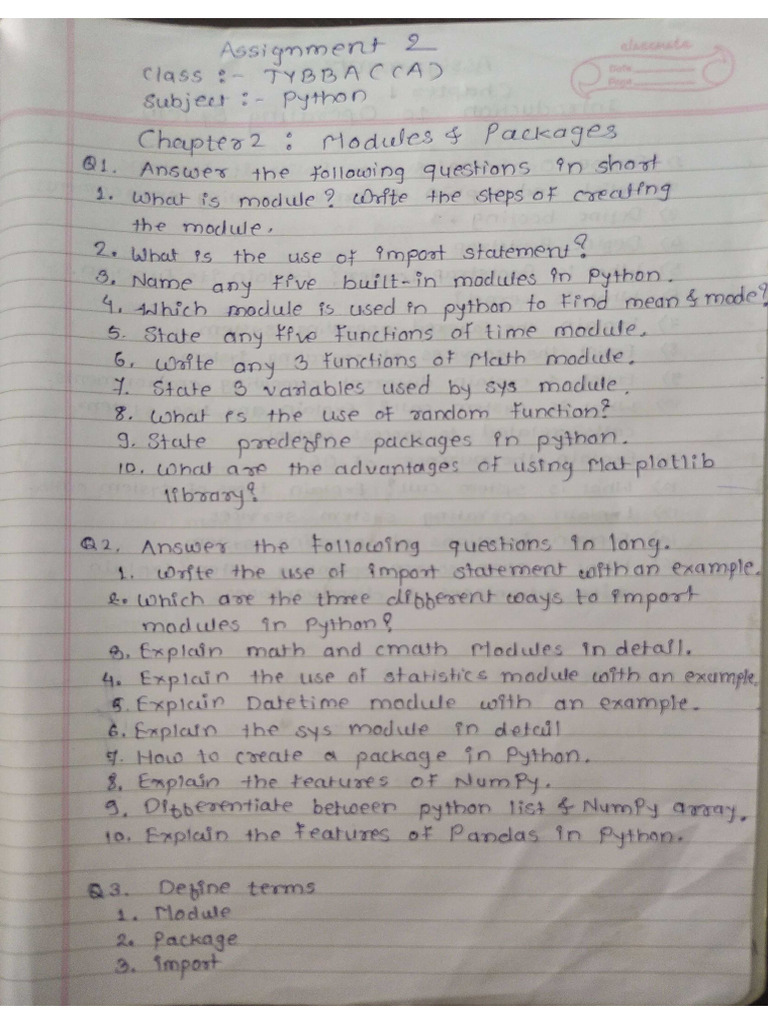 Assignment 2
classmate
Date
Page
Class :- TYBBA(CA)
Subject :- Python
Chapter 2 : Modules & Packages
Q1. Answer the following questions in short
1. What is module? Write the steps of creating
the module.
2. What is the use of import statement?
3. Name any five built-in modules in Python.
4. Which module is used in python to find mean & mode?
5. State any five functions of time module.
6. Write any 3 functions of Math module.
7. State 3 variables used by sys module.
8. What is the use of random function?
9. State predefine packages in python.
10. What are the advantages of using Matplotlib
library?
Q2. Answer the following questions in long.
1. Write the use of import statement with an example.
2. Which are the three different ways to import
modules in Python?
3. Explain math and cmath Modules in detail.
4. Explain the use of statistics module with an example.
5. Explain Datetime module with an example.
6. Explain the sys module in detail
7. How to create a package in Python.
8. Explain the features of NumPy.
9. Differentiate between python list & NumPy array.
10. Explain the features of Pandas in Python.
Q3. Define terms
1. Module
2. Package
3. import